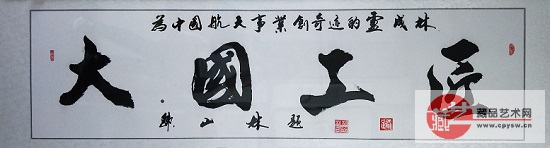 為中國航天事業創奇迹的靈成林
大國工匠
山林 題
藏
藏品艺术网
www.cpysw.cn